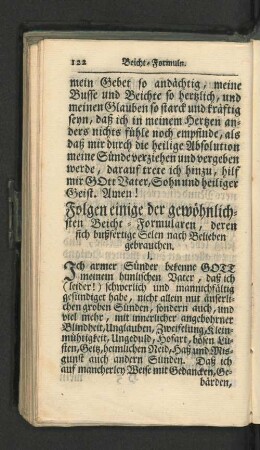 122 Beicht-Formuln.
mein Gebet so andächtig, meine
Busse und Beichte so hertzlich, und
meinen Glauben so starck und kräftig
seyn, daß ich in meinem Hertzen an-
ders nichts fühle noch empfinde, als
daß mir durch die heilige Absolution
meine Sünde verziehen und vergeben
werde, darauf trete ich hinzu, hilf
mir GOtt Vater, Sohn und heiliger
Geist. Amen!
Folgen einige der gewöhnlich-
sten Beicht-Formularen, deren
sich bußfertige Selen nach Belieben
gebrauchen.
I.
Ich armer Sünder bekenne GOTT
meinem himlischen Vater, daß ich
(leider!) schwerlich und mannchfältig
gesündiget habe, nicht allein mit äuserli-
chen groben Sünden, sondern auch, und
viel mehr, mit innerlicher angebohrner
Blindheit, Unglauben, Zweifelung, Klein-
müthigkeit, Ungeduld, Hofart, bösen Lü-
sten, Geitz, heimlichen Neid, Haß und Mis-
gunst auch andern Sünden. Daß ich
auf mancherley Weise mit Gedancken, Ge-
bärden,